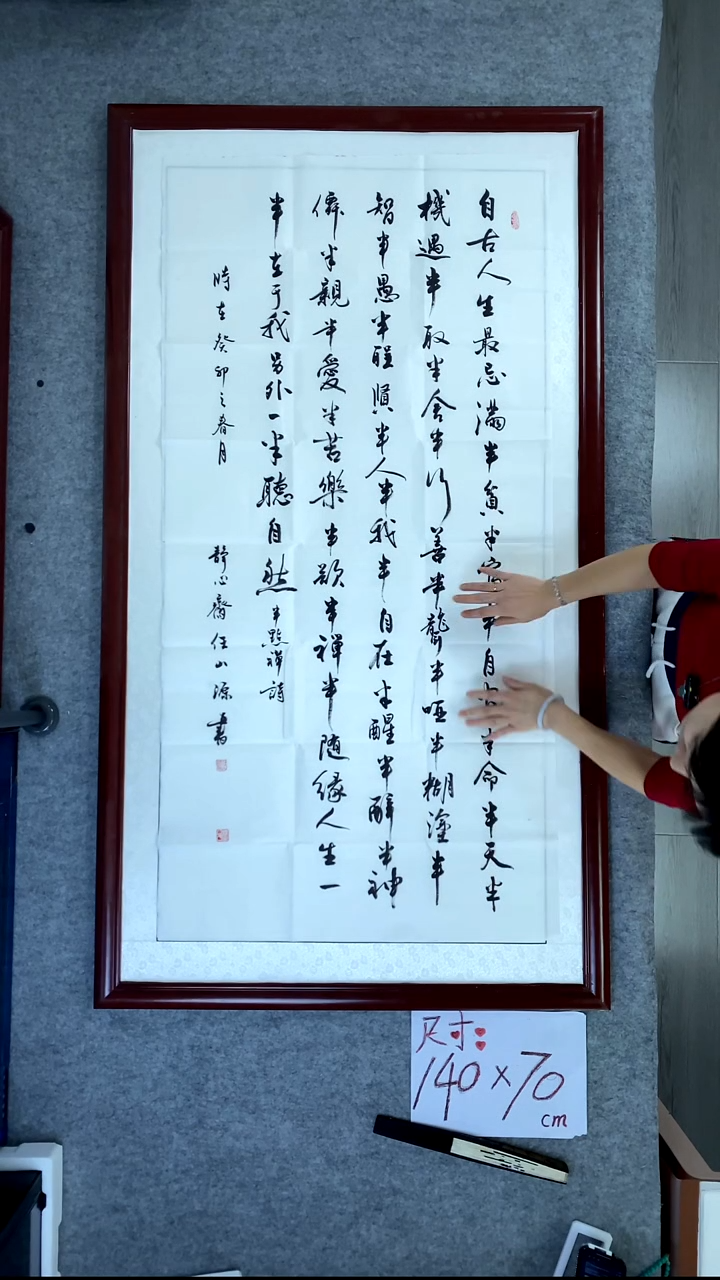 自古人生最忌滿半貧半富半自安半命半天半
機遇半取半舍半行善半聾半啞半糊塗半
智半愚半聖賢半人半我半自在半醒半醉半神
僊半親半愛半苦樂半欲半禪半随緣人生一
半在于我另外一半聽自然半點禪詩
時在癸卯之春月 靜心齋任山源書
尺寸:
140×70
cm